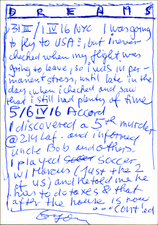 DREAMS
31 III/1 IV 16 NYC I was going
to fly to USA, but I never
checked when my flight was
going to leave, so I was in per-
manent stress, until late in the
day when I checked and saw
that I still had plenty of time
5/6 IV 16 Accord
I discovered a 5re murder
@ 214 Laf. and informed
uncle Bob and others!
I played soccer
w/ (Just the 2
of us) and he told me he
has to do taxes & that
after the house is now
... CONT'ed